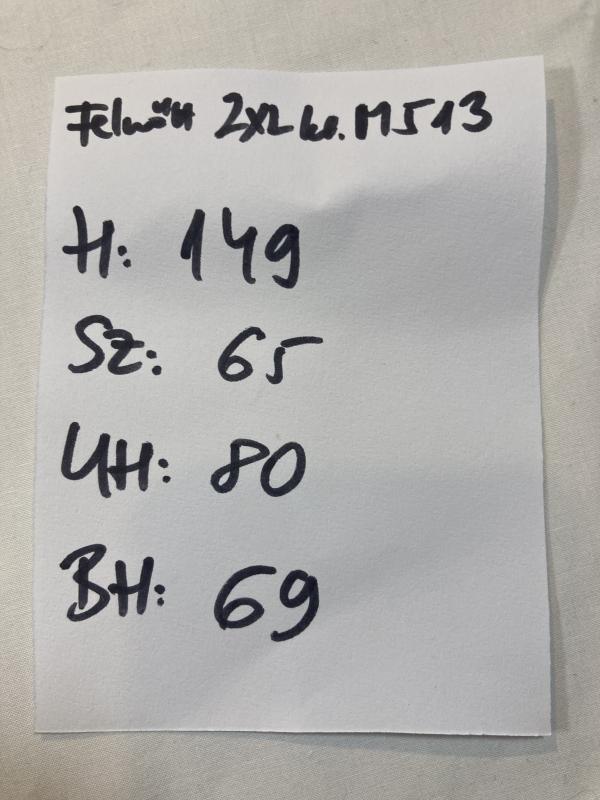 Felnőtt 2XL kr. M513
H: 149
SZ: 65
UH: 80
BH: 69